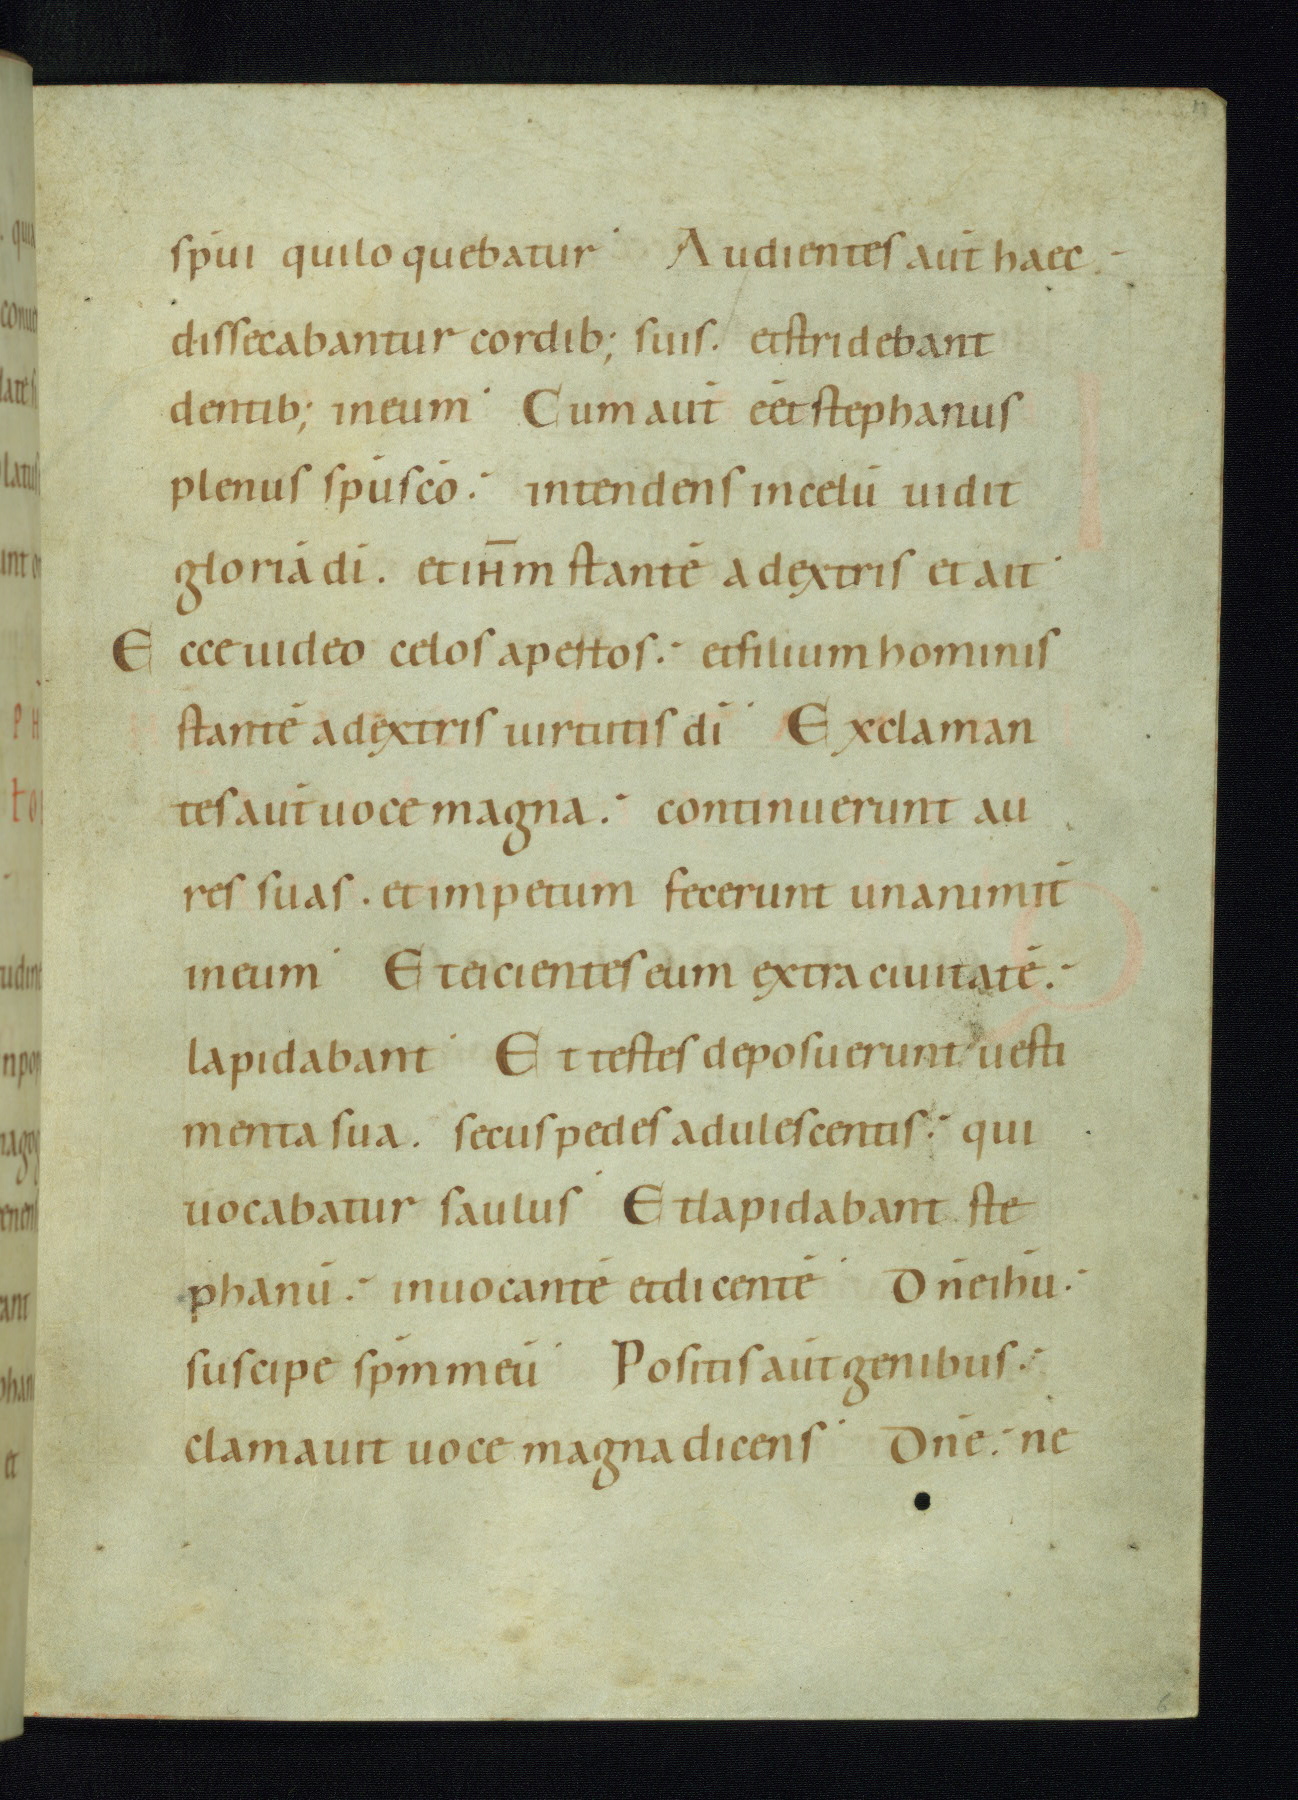 spui qui loquebatur· Audientes aut̄ haec.·
dissecabantur cordib; suis. et stridebant
dentib; in eum· Cum aut̄ eēt stephanus
plenus spū scō.· intendens in celū uidit
gloriā dī. et ih̄m stantē a dextris et ait·
Ecce uideo celos apertos.· et filium hominis
stantē a dextris uirtutis dī· Exclaman
tes aut̄ uoce magna.· continuerunt au
res suas. et impetum fecerunt unanimit̄
in eum· Et eicientes eum extra ciuitatē.·
lapidabant· Et testes deposuerunt uesti
menta sua. secus pedes adulescentis.· qui
uocabatur saulus· Et lapidabant ste
phanū.· inuocantē et dicentē· Dn̄e ih̄u.·
suscipe spm̄ meū· Positis aut̄ genibus.·
clamauit uoce magna dicens· Dn̄e.· ne